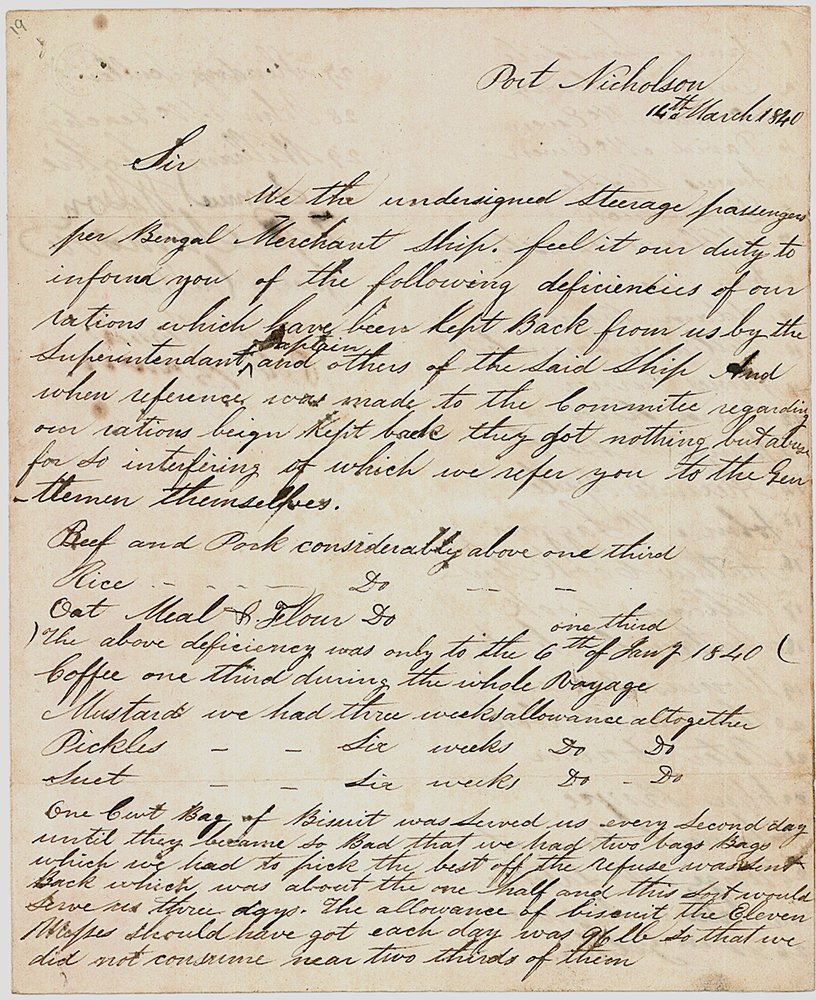 19
Port Nicholson
14th March 1840
Sir
We the undersigned Steerage passengers
per Bengal Merchant Ship. feel it our duty to
inform you of the following deficiencies of our
rations which have been Kept Back from us by the
Superintendant, Captain and others of the Said Ship And
when reference was made to the Committee regarding
our rations beign Kept back they got nothing but abuse
for so interfiring of which we refer you to the Gen
-tlemen themselves.
Beef and Pork considerably above one third
Rice - - - - Do - -
Oat Meal & Flour Do one third
)The above deficiency was only to the 6th of Jany 1840 (
Coffee one third during the whole Voyage
Mustard we had three weeks allowance altogether
Pickles - - Six weeks Do Do
Suet - - Six weeks Do - Do
One Cwt Bag of Biscuit was served us every second day
until they became so Bad that we had two bags Bags
which we had to pick the best off the refuse was Sent
Back which was about the one half and this would
Serve us three days. The allowance of biscuit the Eleven
Messes should have got each day was 96 lb so that we
did not consume near two thirds of them